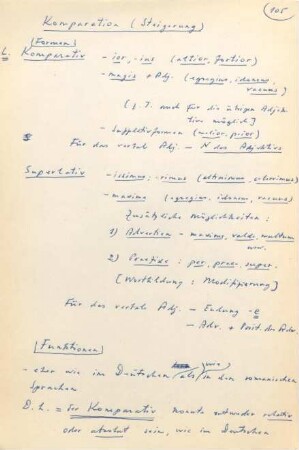 105
Komparation (Steigerung)
[Formen]
L. Komparativ - ior, -ius (altior, fortior)
- magis + Adj. (egregius, idoneus, vacuus)
[z. T. auch für die übrigen Adjek-
tive möglich]
- Suppletivformen (melior, prior)
Für das verbale Adj. - N des Adjektivs
Superlativ - issimus, -rimus (altissimus, celerrimus)
- maxime (egregius, idoneus, vacuus)
Zusätzliche Möglichkeiten:
1) Adverbien - maxime, valde, multum
usw.
2) Präfixe: per, prae, super.
[Wortbildung: Modifizierung]
Für das verbale Adj. - Endung -e
- Adv. + Posit. des Adv.
[Funktionen]
- eher wie im Deutschen als wie in den romanischen
Sprachen
D. h. = Der Komparativ konnte entweder relativ
oder absolut sein, wie im Deutschen